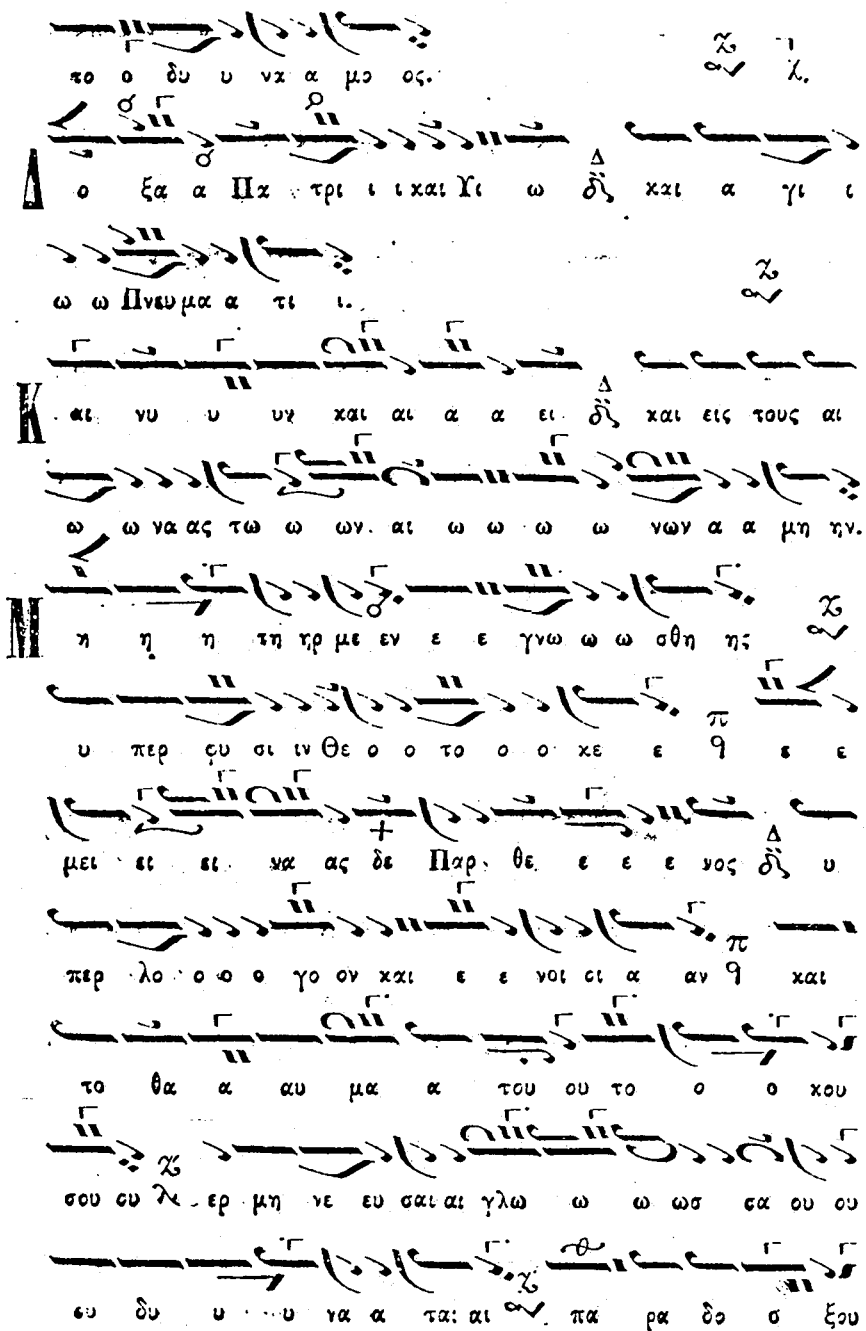 το ο δυ υ να α μο ος.
Δ ο ξα α Πα τρι ι ι και Υι ω και α γι ι
ω ω Πνευ μα α τι ι.
Κ αι νυ υ υν και αι α α ει και εις τους αι
ω ω να ας τω ω ων αι ω ω ω ω νων α α μη ην.
Μ η η η τη ηρ με εν ε ε γνω ω ω σθη ης
υ περ φυ σι ιν Θε ο ο το ο ο κε ε ε ε
μει ει ει να ας δε Παρ θε ε ε ε νος υ
περ λο ο ο ο γο ον και ε ε νοι οι α αν και
το θα α αυ μα α του ου το ο ο κου
σου ου ερ μη νε ευ σαι αι γλω ω ω ωσ σα ου ου
ου δυ υ υ να α ται αι πα ρα δο ο ξου